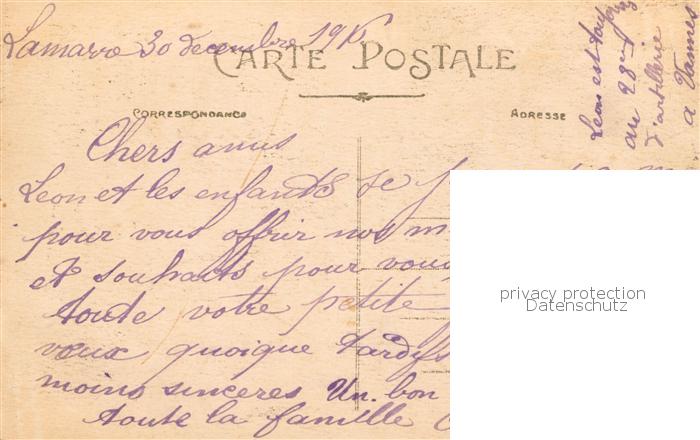 30 decembre
CARTE POSTALE
CORRESPONDANCE
ADRESSE
Leon est
au 28
d'artillerie
a Vannes
Chers amis
Leon et les enfants se
pour vous offrir nos
et souhaits pour vous
toute votre petite
vœux quoique tardifs
moins sinceres Un bon
toute la famille
privacy protection
Datenschutz